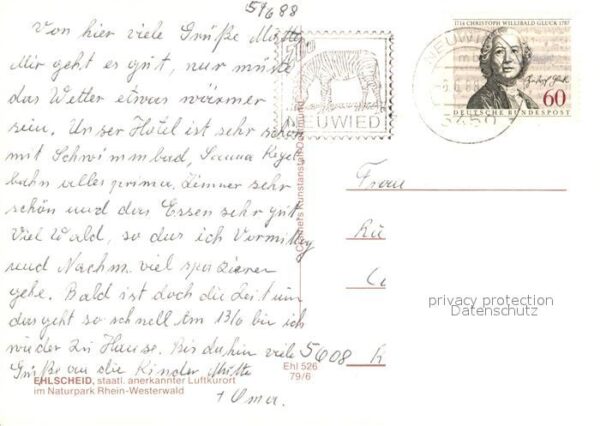 5/6 88
Von hier viele Grüße
Mir geht es gut, nur müßte
das Wetter etwas wärmer
sein. Unser Hotel ist sehr schön
mit Schwimmbad, Sauna Kegel-
bahn alles prima. Zimmer sehr
schön und das Essen sehr gut
Viel Wald, so das ich Vormittag
und Nachm. viel spazieren
gehe. Bald ist doch die Zeit um
das geht so schnell Am 13/6 bin ich
wieder zu Hause. Bis dahin viele
Grüße an die Kinder
+ Oma.
EHLSCHEID, staatl. anerkannter Luftkurort
im Naturpark Rhein-Westerwald
Ehl 526
79/6
Cramers Kunstanstalt Dortmund
ZOO
NEUWIED
NEUWIED
5450
1714 CHRISTOPH WILLIBALD GLUCK 1787
60
DEUTSCHE BUNDESPOST
Frau
5608
privacy protection
Datenschutz